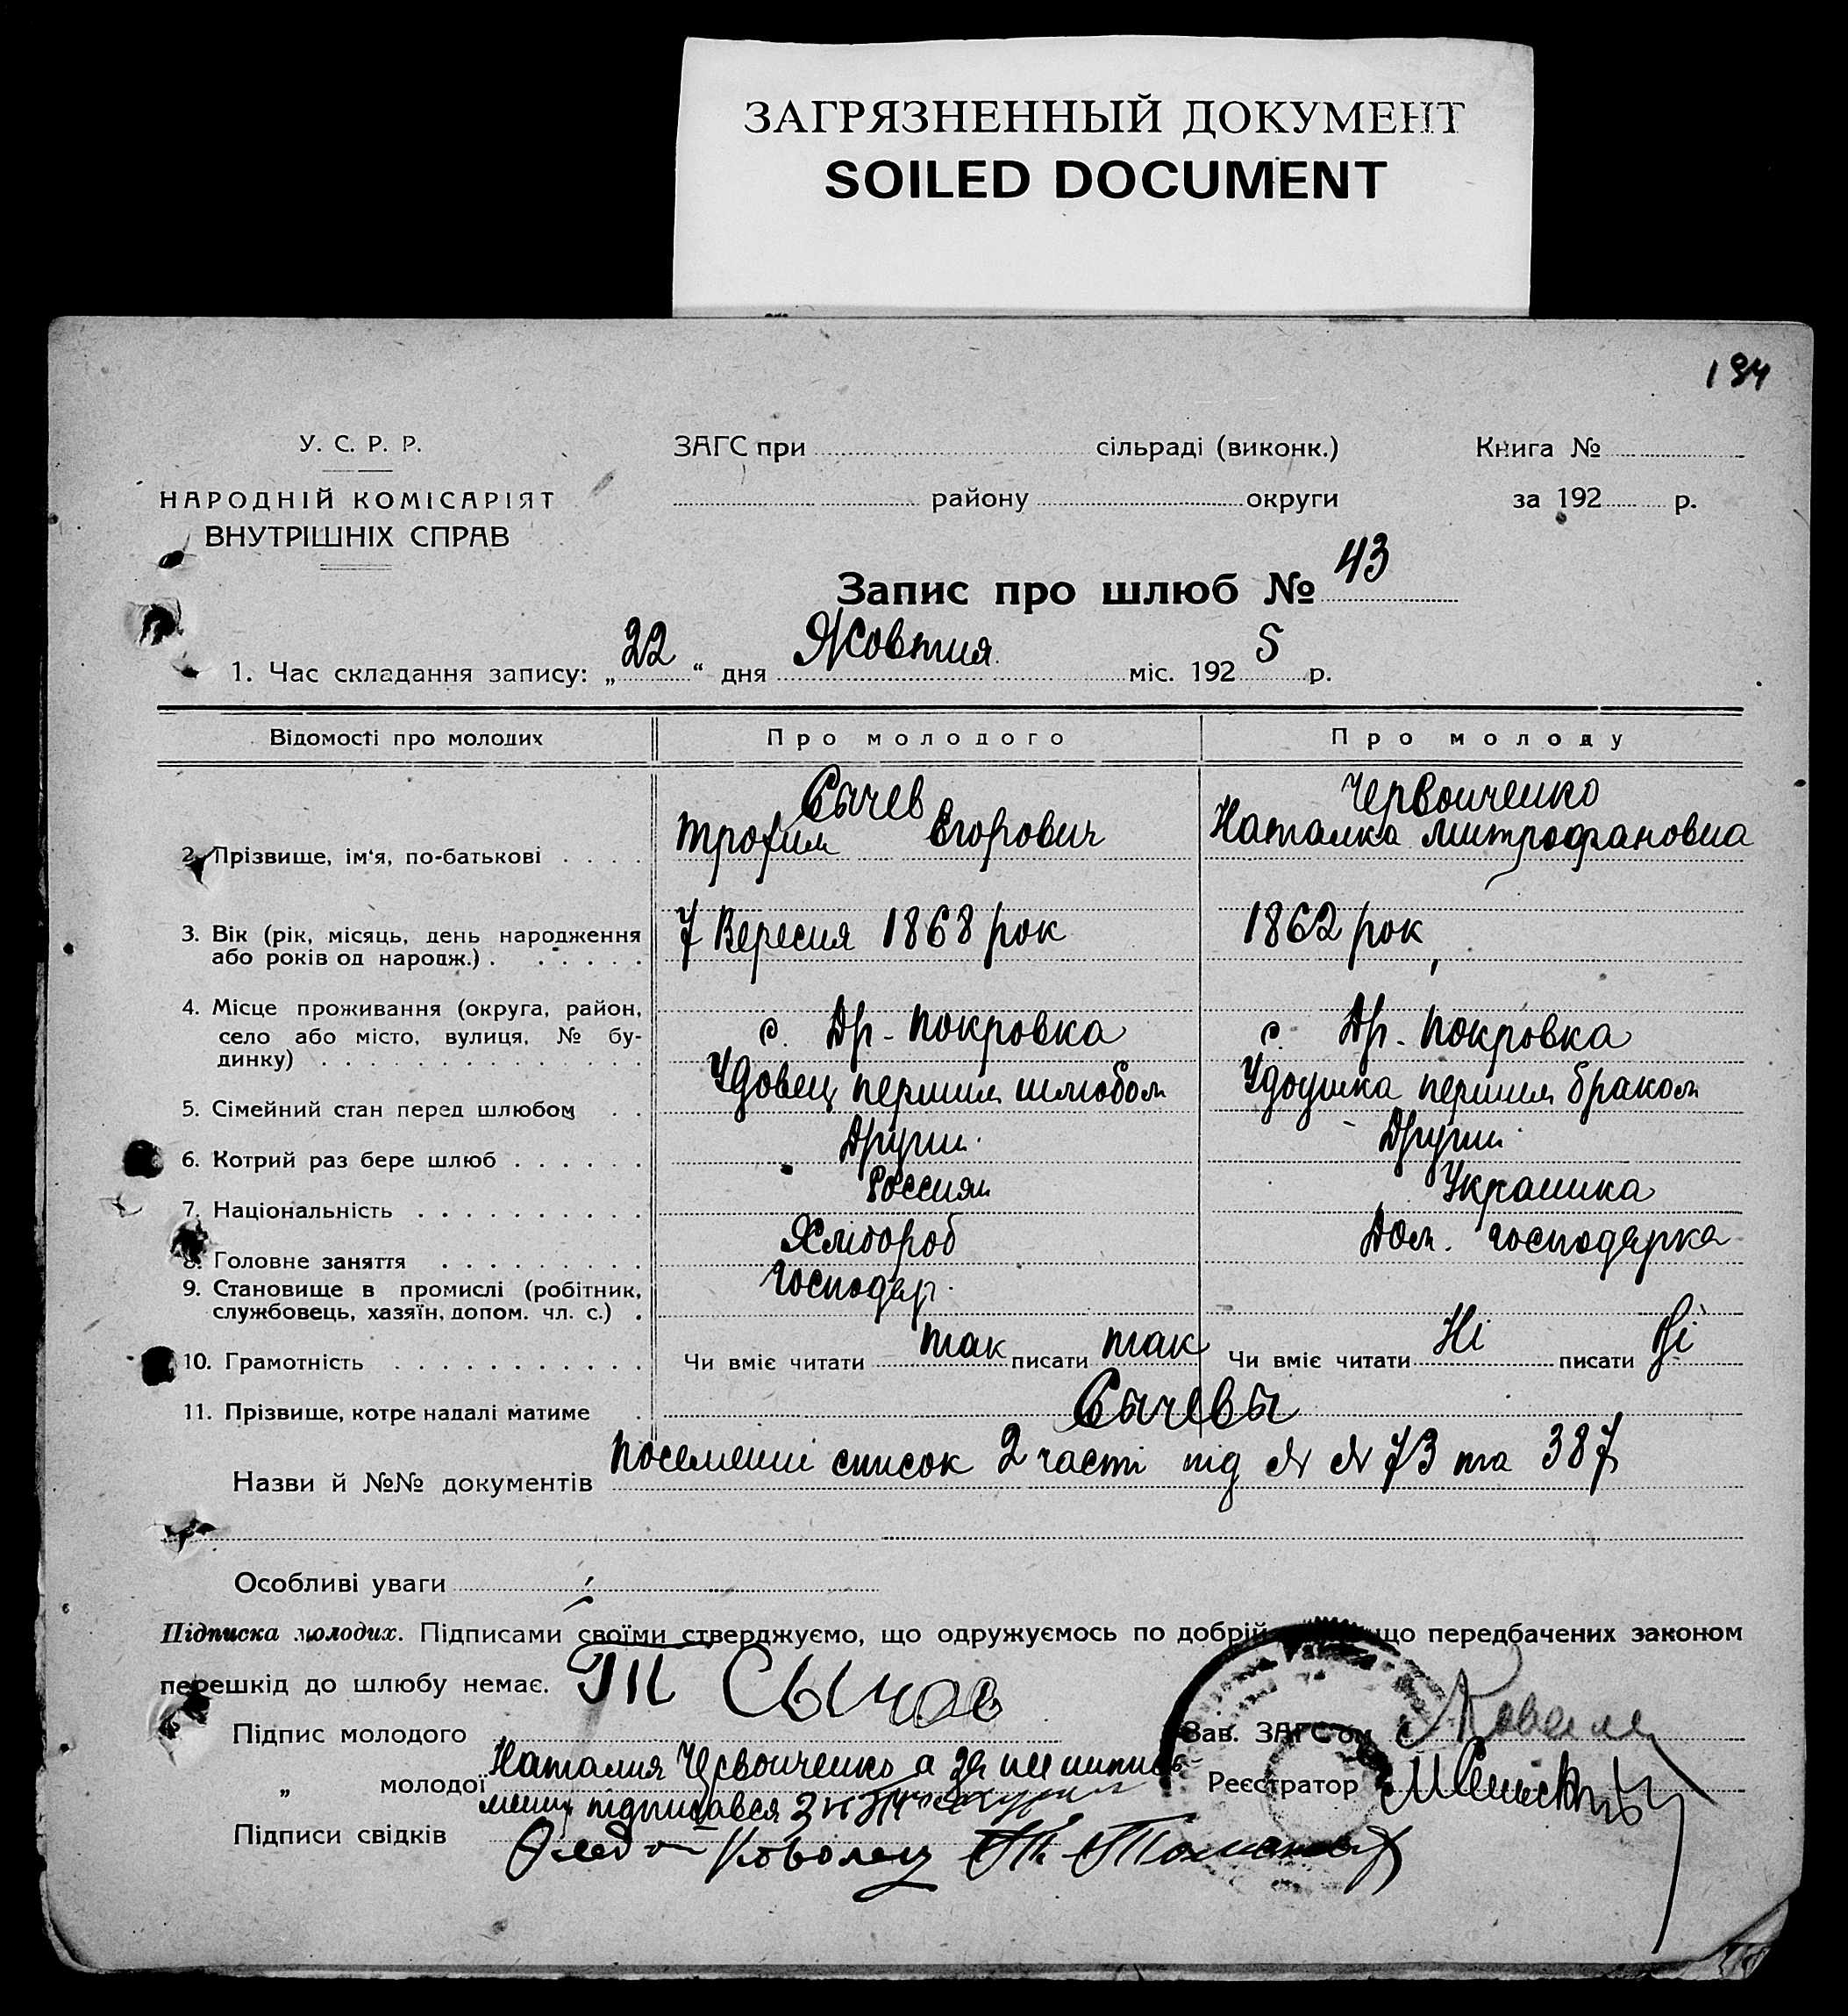 ЗАГРЯЗНЕННЫЙ ДОКУМЕНТ
SOILED DOCUMENT
194
У. С. Р. Р.
НАРОДНІЙ КОМІСАРІЯТ
ВНУТРІШНІХ СПРАВ
ЗАГС при сільраді (виконк.)
району округи
Книга №
за 192 р.
Запис про шлюб № 43
1. Час складання запису: „22“ дня Жовтня міс. 1925 р.
Відомості про молодих Про молодого Про молоду
Сычев Червонченко
2. Прізвище, ім'я, по-батькові . . . . Трофим Єгорович Наталка Митрофановна
3. Вік (рік, місяць, день народження 7 Вересня 1868 рок 1862 рок
або років од народж.) . . . . . .
4. Місце проживання (округа, район,
село або місто, вулиця, № бу- с. Др-Покровка с. Др-Покровка
динку) . . . . . . . . . . . . . .
5. Сімейний стан перед шлюбом . . Удовец першим шлюбом Удоушка першим браком
6. Котрий раз бере шлюб . . . . . . Другий Другий
7. Національність . . . . . . . . . . Россиян Украинка
8. Головне заняття . . . . . . . . . Хлібороб Дом. господарка
9. Становище в промислі (робітник, Господар.
службовець, хазяїн, допом. чл. с.) .
10. Грамотність . . . . . . . . . . . Чи вміє читати так писати так Чи вміє читати Ні писати Ні
11. Прізвище, котре надалі матиме . Сычевы
Назви й №№ документів Посемейні список 2 часті під № № 73 та 387
Особливі уваги
Підписка молодих. Підписами своїми стверджуємо, що одружуємось по добрій що передбачених законом
перешкід до шлюбу немає.
Підпис молодого Т Сычов
Зав. ЗАГС'ом
„ молодої Наталия Червонченко а за
підписався
Реєстратор
Підписи свідків